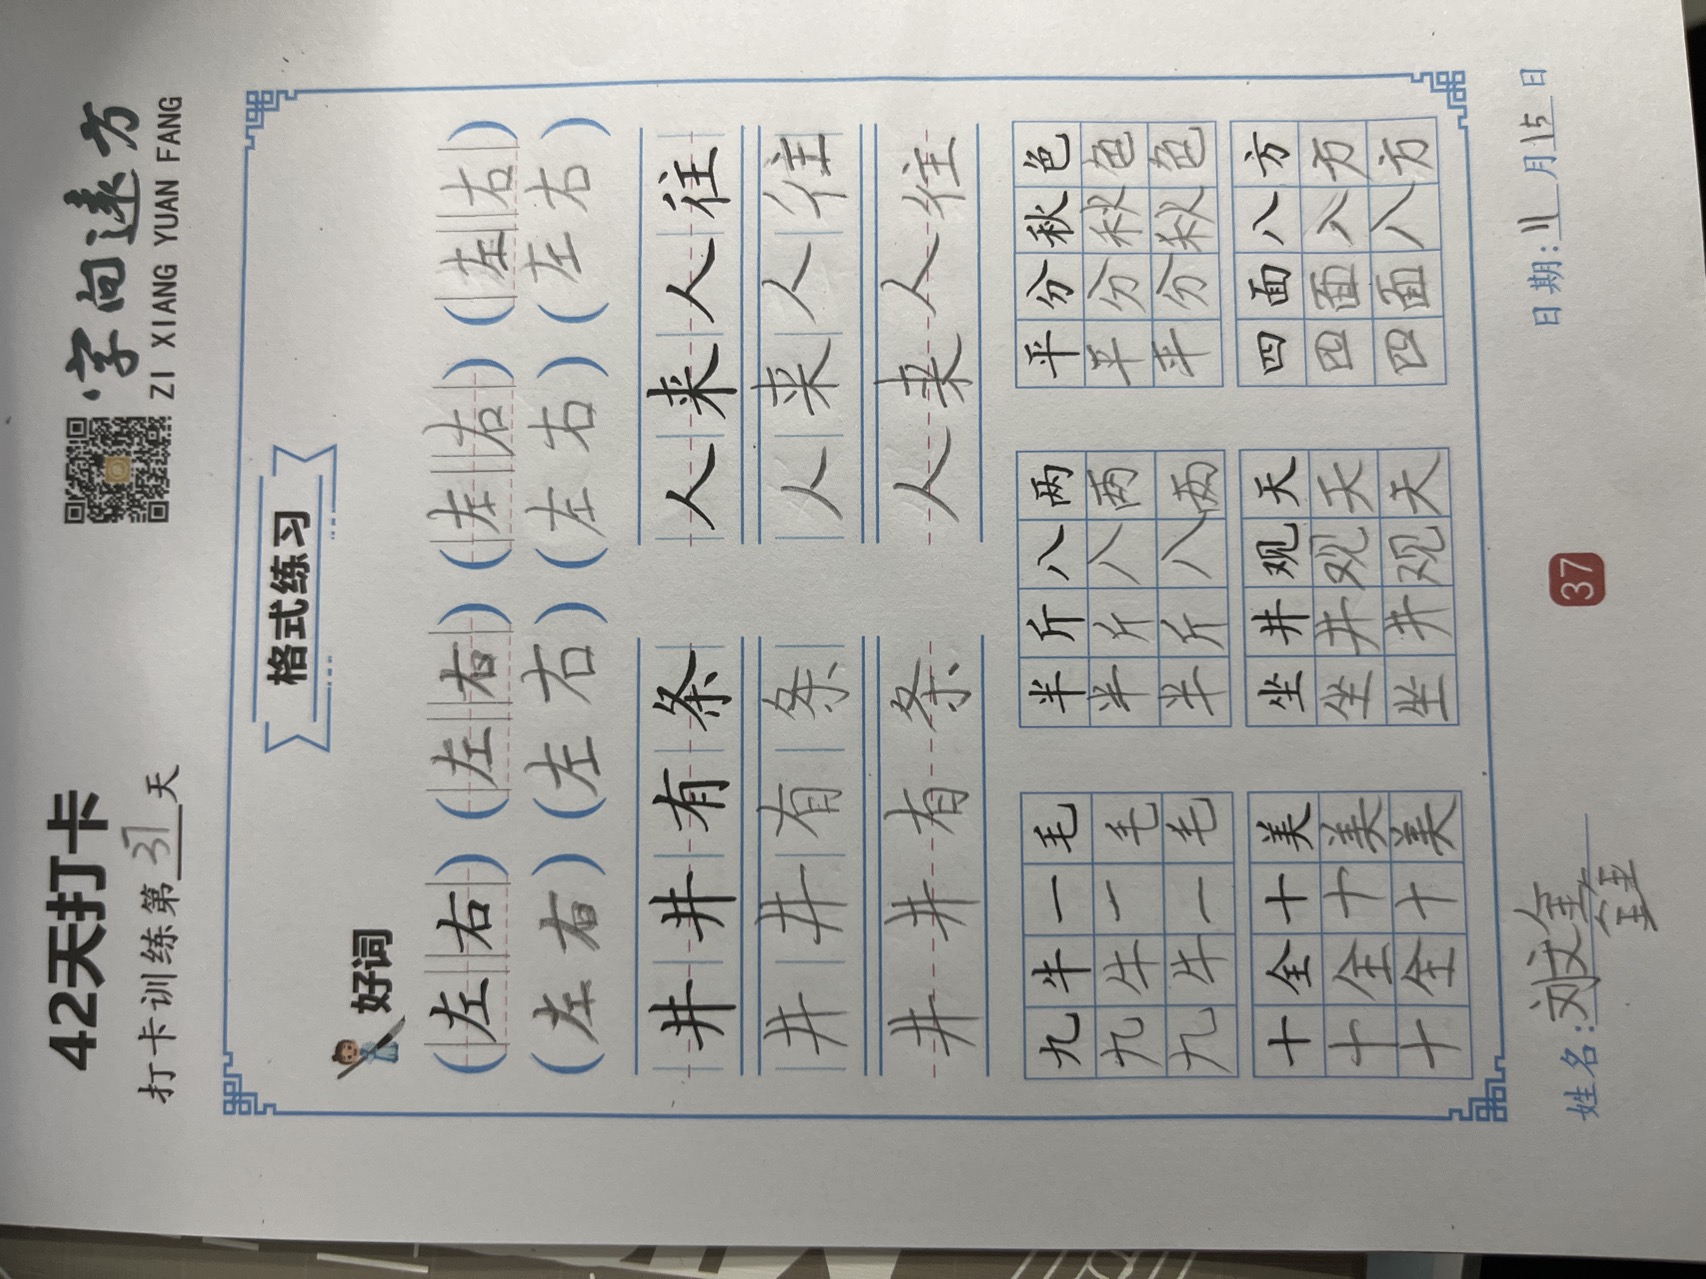 42天打卡
打卡训练第31天
字向远方
ZI XIANG YUAN FANG
格式练习
好词
(左右)(左右)(左右)(左右)
(左右)(左右)(左右)(左右)
井井有条 人来人往
井井有条 人来人往
井井有条 人来人往
九牛一毛 半斤八两 平分秋色
九牛一毛 半斤八两 平分秋色
九牛一毛 半斤八两 平分秋色
十全十美 坐井观天 四面八方
十全十美 坐井观天 四面八方
十全十美 坐井观天 四面八方
姓名:刘文鑫
37
日期:11月15日